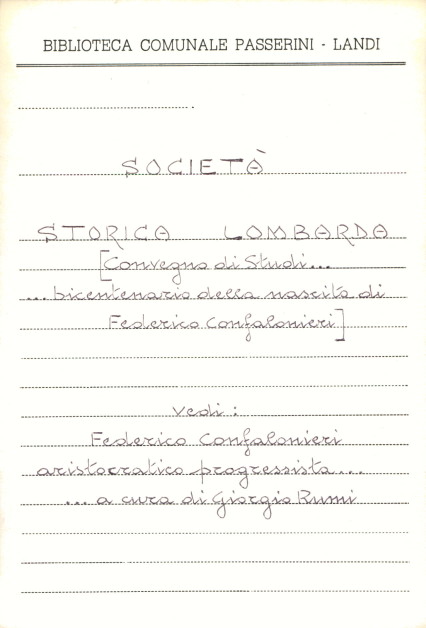 BIBLIOTECA COMUNALE PASSERINI - LANDI
SOCIETÀ
STORICA LOMBARDA
[Convegno di Studi...
... bicentenario della nascita di
Federico Confalonieri]
vedi :
Federico Confalonieri
aristocratico progressista...
... a cura di Giorgio Rumi